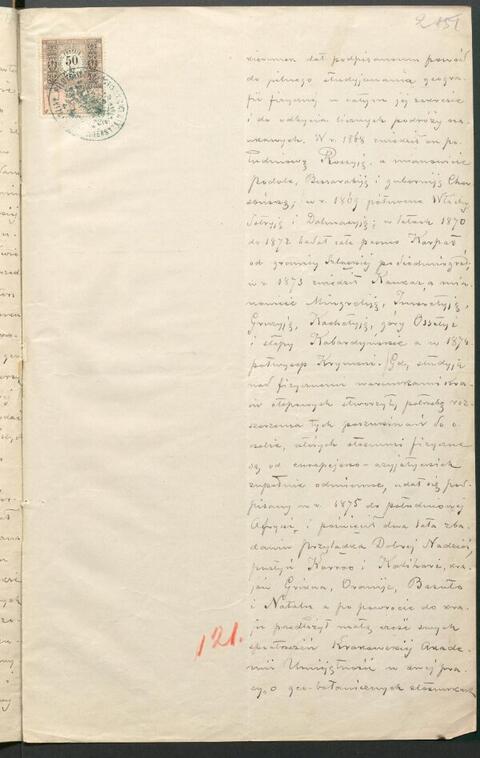 2151
50
kierunek dał podpisanemu powód
do pilnego studyjowania geogra-
fii fizycznej w całym jej zakresie
i do odbycia licznych podróży na-
ukowych. W r. 1868 zwiedził on po-
łudniową Rossyję a mianowicie
Podole, Bessarabiją i guberniją Cher-
sońską; w r. 1869 północne Włochy
Istryją i Dalmacyją; w latach 1870
do 1872 badał całe pasmo Karpat
od granicy Szląskiej po Siedmiogród,
w r. 1873 zwiedził Kaukaz, a mia-
nowicie Mingreliją, Imeretyją,
Gruzyją, Kachetyją, góry Ossetyi
i stepy Kabardyńskie a w r. 1874
półwysep Krymski. Gdy studyja
nad fizycznemi warunkami kra-
jów stepowych stworzyły potrzebę roz-
szerzenia tych poszukiwań do o-
kolic, których stosunki fizyczne
są od europejsko-azyjatyckich
zupełnie odmienne, udał się pod-
pisany w r. 1875 do południowej
Afryki, i poświęcił dwa lata zba-
daniu Przylądka Dobrej Nadziei,
pustyń Karroo i Kalihari, kra-
jów Griqua, Oranije, Basuto
i Natalu a po powrocie do kra-
ju przedłożył małą część swych
spostrzeżeń Krakowskiej Akade-
mii Umiejętności w swej pra-
cy, o geo-botanicznych stosunkach
121.